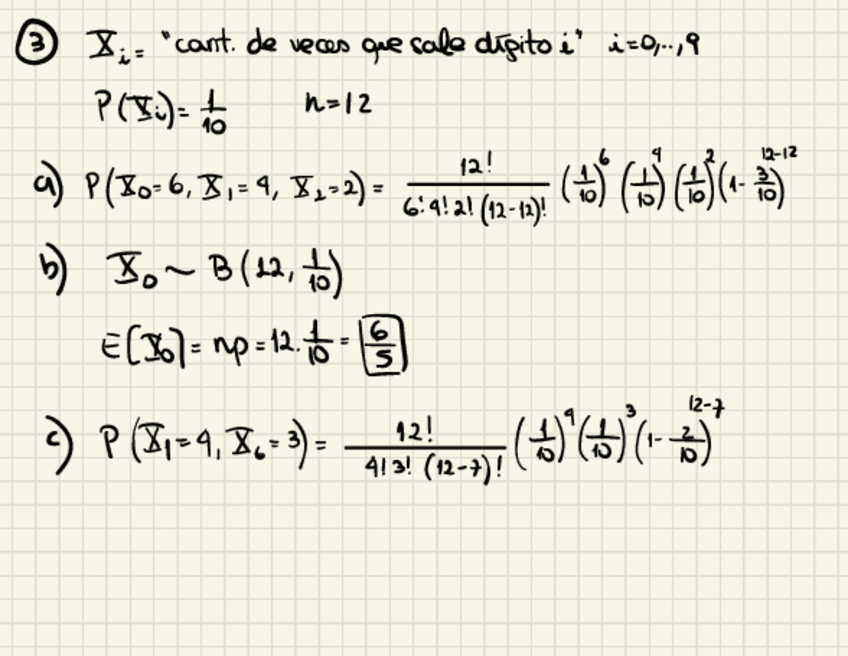 ③ X_i = "cant. de veces que sale dígito i" i=0,..,9
P(X_i) = 1/10 n=12
a) P(X_0=6, X_1=4, X_2=2) = 12! / (6! 4! 2! (12-12)!) (1/10)^6 (1/10)^4 (1/10)^2 (1 - 3/10)^(12-12)
b) X_0 ~ B(12, 1/10)
E[X_0] = np = 12 . 1/10 = 6/5
c) P(X_1=4, X_6=3) = 12! / (4! 3! (12-7)!) (1/10)^4 (1/10)^3 (1 - 2/10)^(12-7)